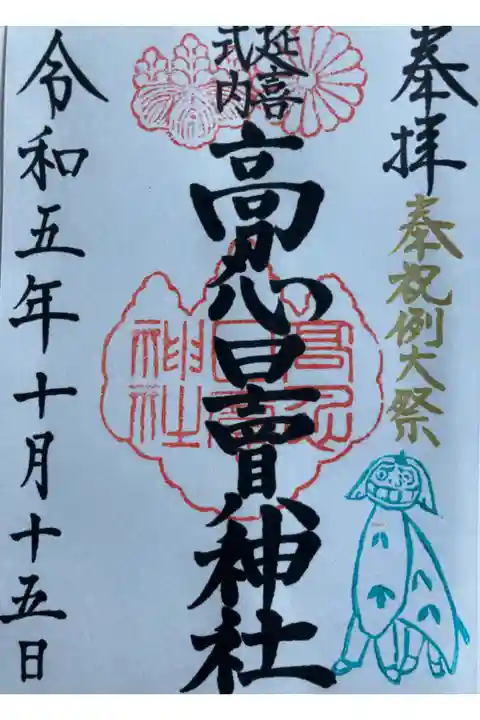 奉拝
奉祝例大祭
延喜
式内
高忍日賣神社
高忍
日賣
神社
令和五年十月十五日